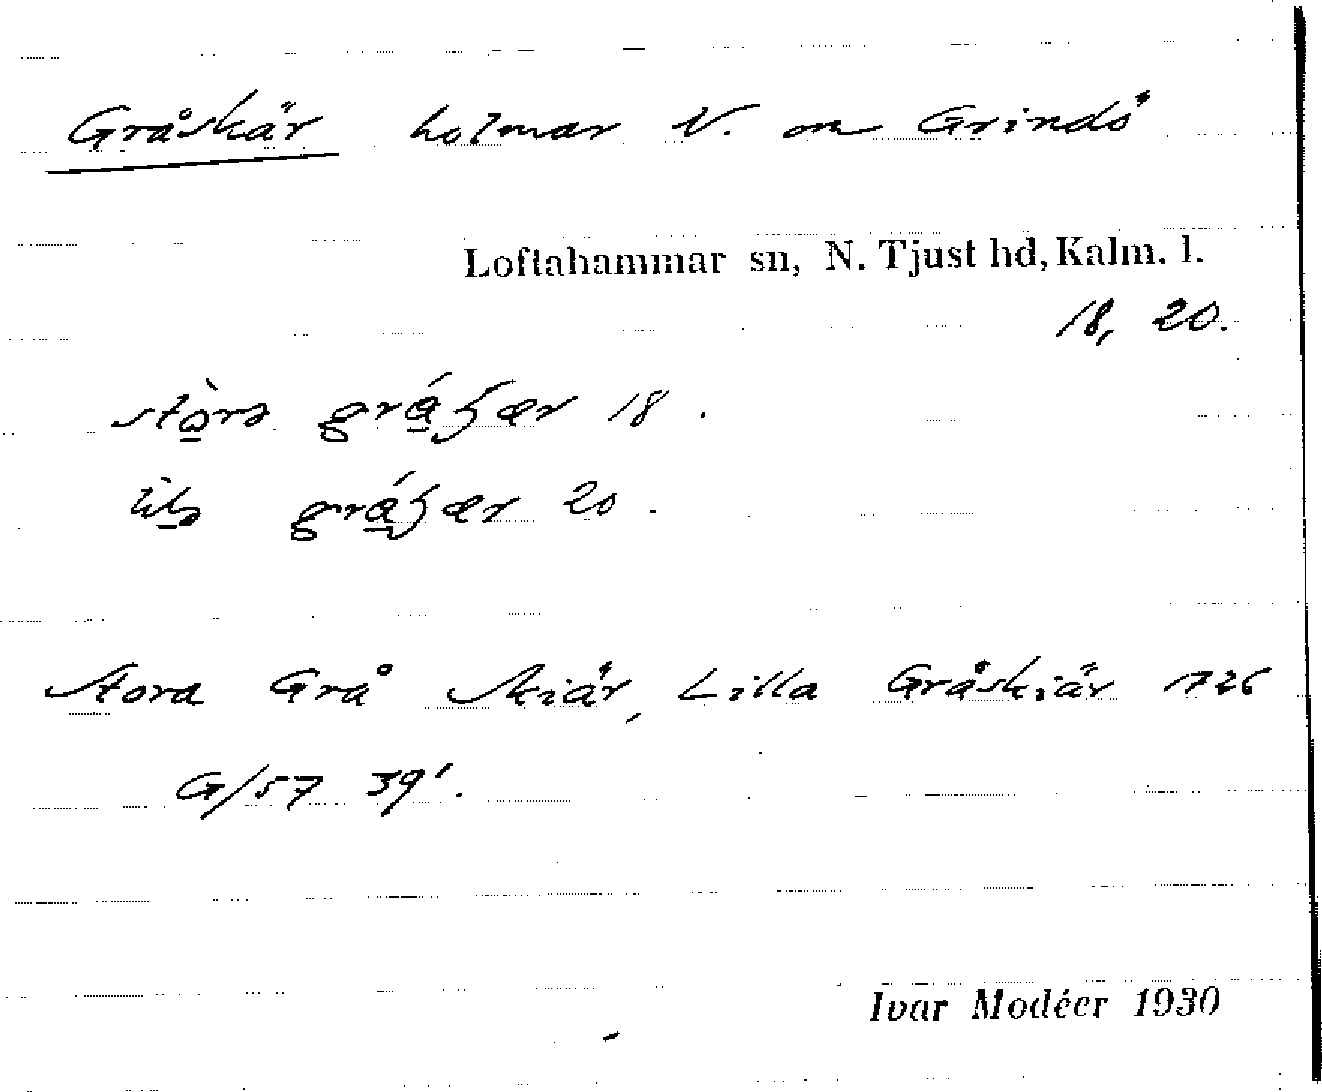 Gråskär holmar N. om Grindö
Loftahammar sn, N. Tjust hd, Kalm. l.
18, 20.
18.
20.
Stora Grå Skiär, Lilla Gråskiär 1726
G/57 39'.
Ivar Modéer 1930